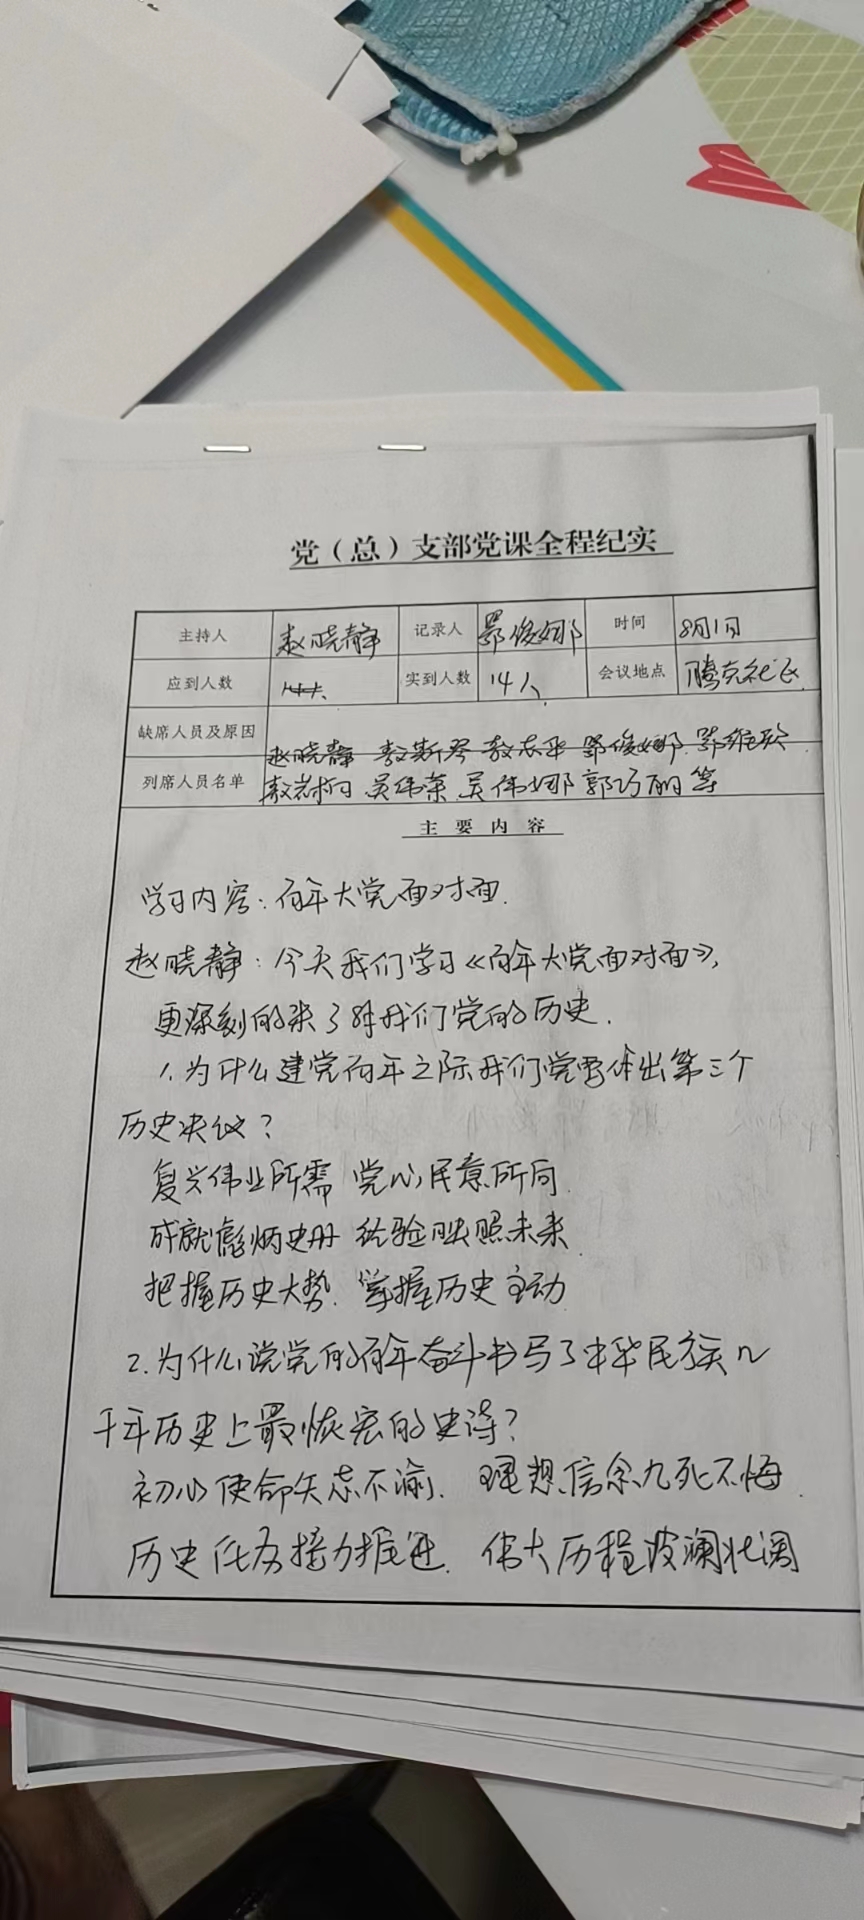 党（总）支部党课全程纪实
主持人 赵晓静 记录人 鄂俊娜 时间 8月1日
应到人数 14人 实到人数 14人 会议地点 腾克社区
缺席人员及原因
赵晓静 敖斯琴 敖志平 鄂俊娜 鄂维玲
列席人员名单 吴伟荣 吴伟娜 郭巧丽等
主要内容
学习内容：百年大党面对面.
赵晓静：今天我们学习《百年大党面对面》，
更深刻的来了解我们党的历史.
1.为什么建党百年之际我们党要作出第三个
历史决议？
复兴伟业所需 党心民意所向
成就彪炳史册 经验映照未来
把握历史大势. 掌握历史主动
2.为什么说党的百年奋斗书写了中华民族几
千年历史上最恢宏的史诗？
初心使命矢志不渝. 理想信念九死不悔.
历史任务接力推进. 伟大历程波澜壮阔